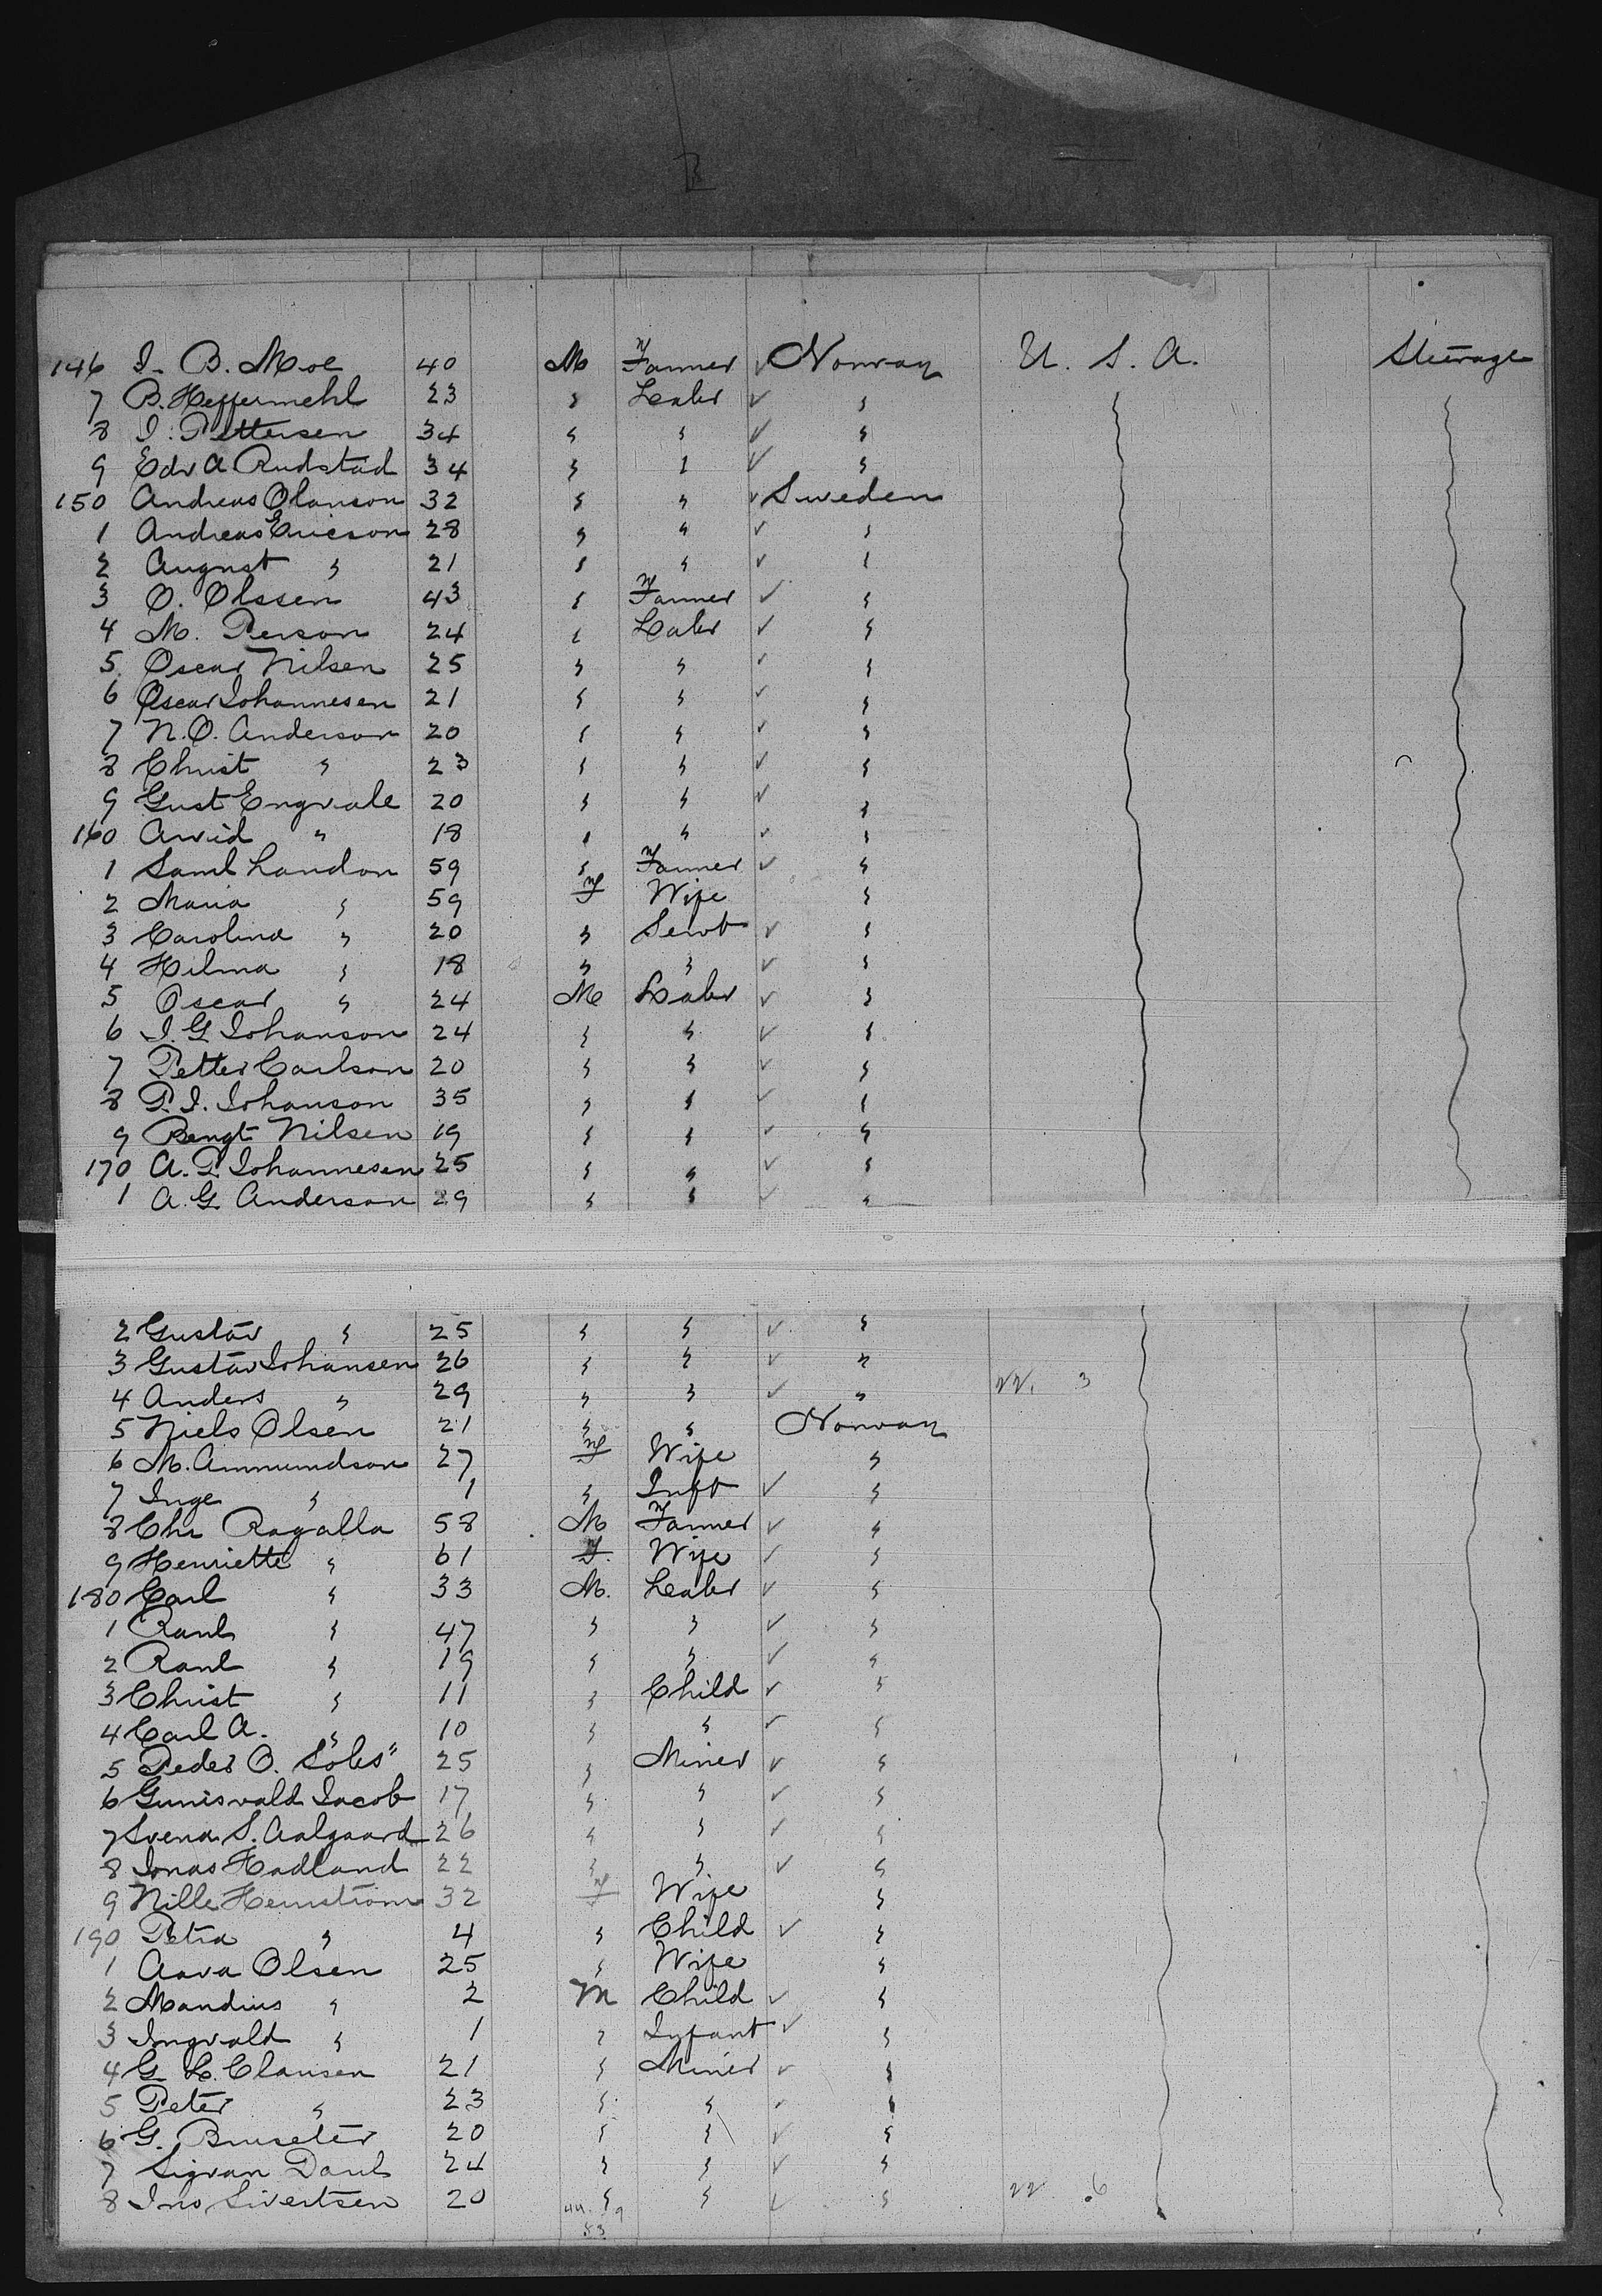 146 I. B. Moe 40 M Farmer ✓ Norway U. S. A. Steerage
7 B. Heffermehl 23 " Labr ✓ "
8 I. Pettersen 34 " " ✓ "
9 Edv A. Rudstad 34 " " ✓ "
150 Andreas Olanson 32 " " ✓ Sweden
1 Andreas Ericson 28 " " ✓ "
2 August " 21 " " ✓ "
3 O. Olssen 43 " Farmer ✓ "
4 M. Person 24 " Labr ✓ "
5 Oscar Nilsen 25 " " ✓ "
6 Oscar Johannesen 21 " " ✓ "
7 N. O. Anderson 20 " " ✓ "
8 Christ " 23 " " ✓ "
9 Gust Engvale 20 " " ✓ "
160 Arvid " 18 " " ✓ "
1 Saml Landon 59 " Farmer ✓ "
2 Maria " 59 F Wife "
3 Carolina " 20 " Servt ✓ "
4 Hilma " 18 " " ✓ "
5 Oscar " 24 M Labr ✓ "
6 J. G. Johanson 24 " " ✓ "
7 Petter Carlson 20 " " ✓ "
8 P. J. Johanson 35 " " ✓ "
9 Bengt Nilsen 19 " " ✓ "
170 A. P. Johannesen 25 " " ✓ "
1 A. G. Anderson 29 " " ✓ "
2 Gustav " 25 " " ✓ "
3 Gustav Johansen 26 " " ✓ "
4 Anders " 29 " " ✓ " 22. 3
5 Niels Olsen 21 " " Norway
6 M. Ammundson 27 F Wife "
7 Inge " 1 " Inft ✓ "
8 Chr Ragalla 58 M Farmer ✓ "
9 Henriette " 61 F. Wife ✓ "
180 Carl " 33 M. Labr ✓ "
1 Raul " 47 " " ✓ "
2 Raul " 19 " " ✓ "
3 Christ " 11 " Child ✓ "
4 Carl A. " 10 " " ✓ "
5 Peder O. 25 " Miner ✓ "
6 Gunisvald Jacob 17 " " ✓ "
7 Svena S. Aalgaard 26 " " ✓ "
8 Jonas Hadland 22 " " ✓ "
9 Nille Hernstrom 32 F Wife "
190 Petra " 4 " Child ✓ "
1 Aava Olsen 25 " Wife "
2 Mandius " 2 M Child ✓ "
3 Ingvald " 1 " Infant ✓ "
4 G. L. Clausen 21 " Miner ✓ "
5 Peter " 23 " " ✓ "
6 G. Bruseter 20 " " ✓ "
7 Sigvan Daul 24 " " ✓ "
8 Jno Sivertsen 20 " " ✓ " 22 6